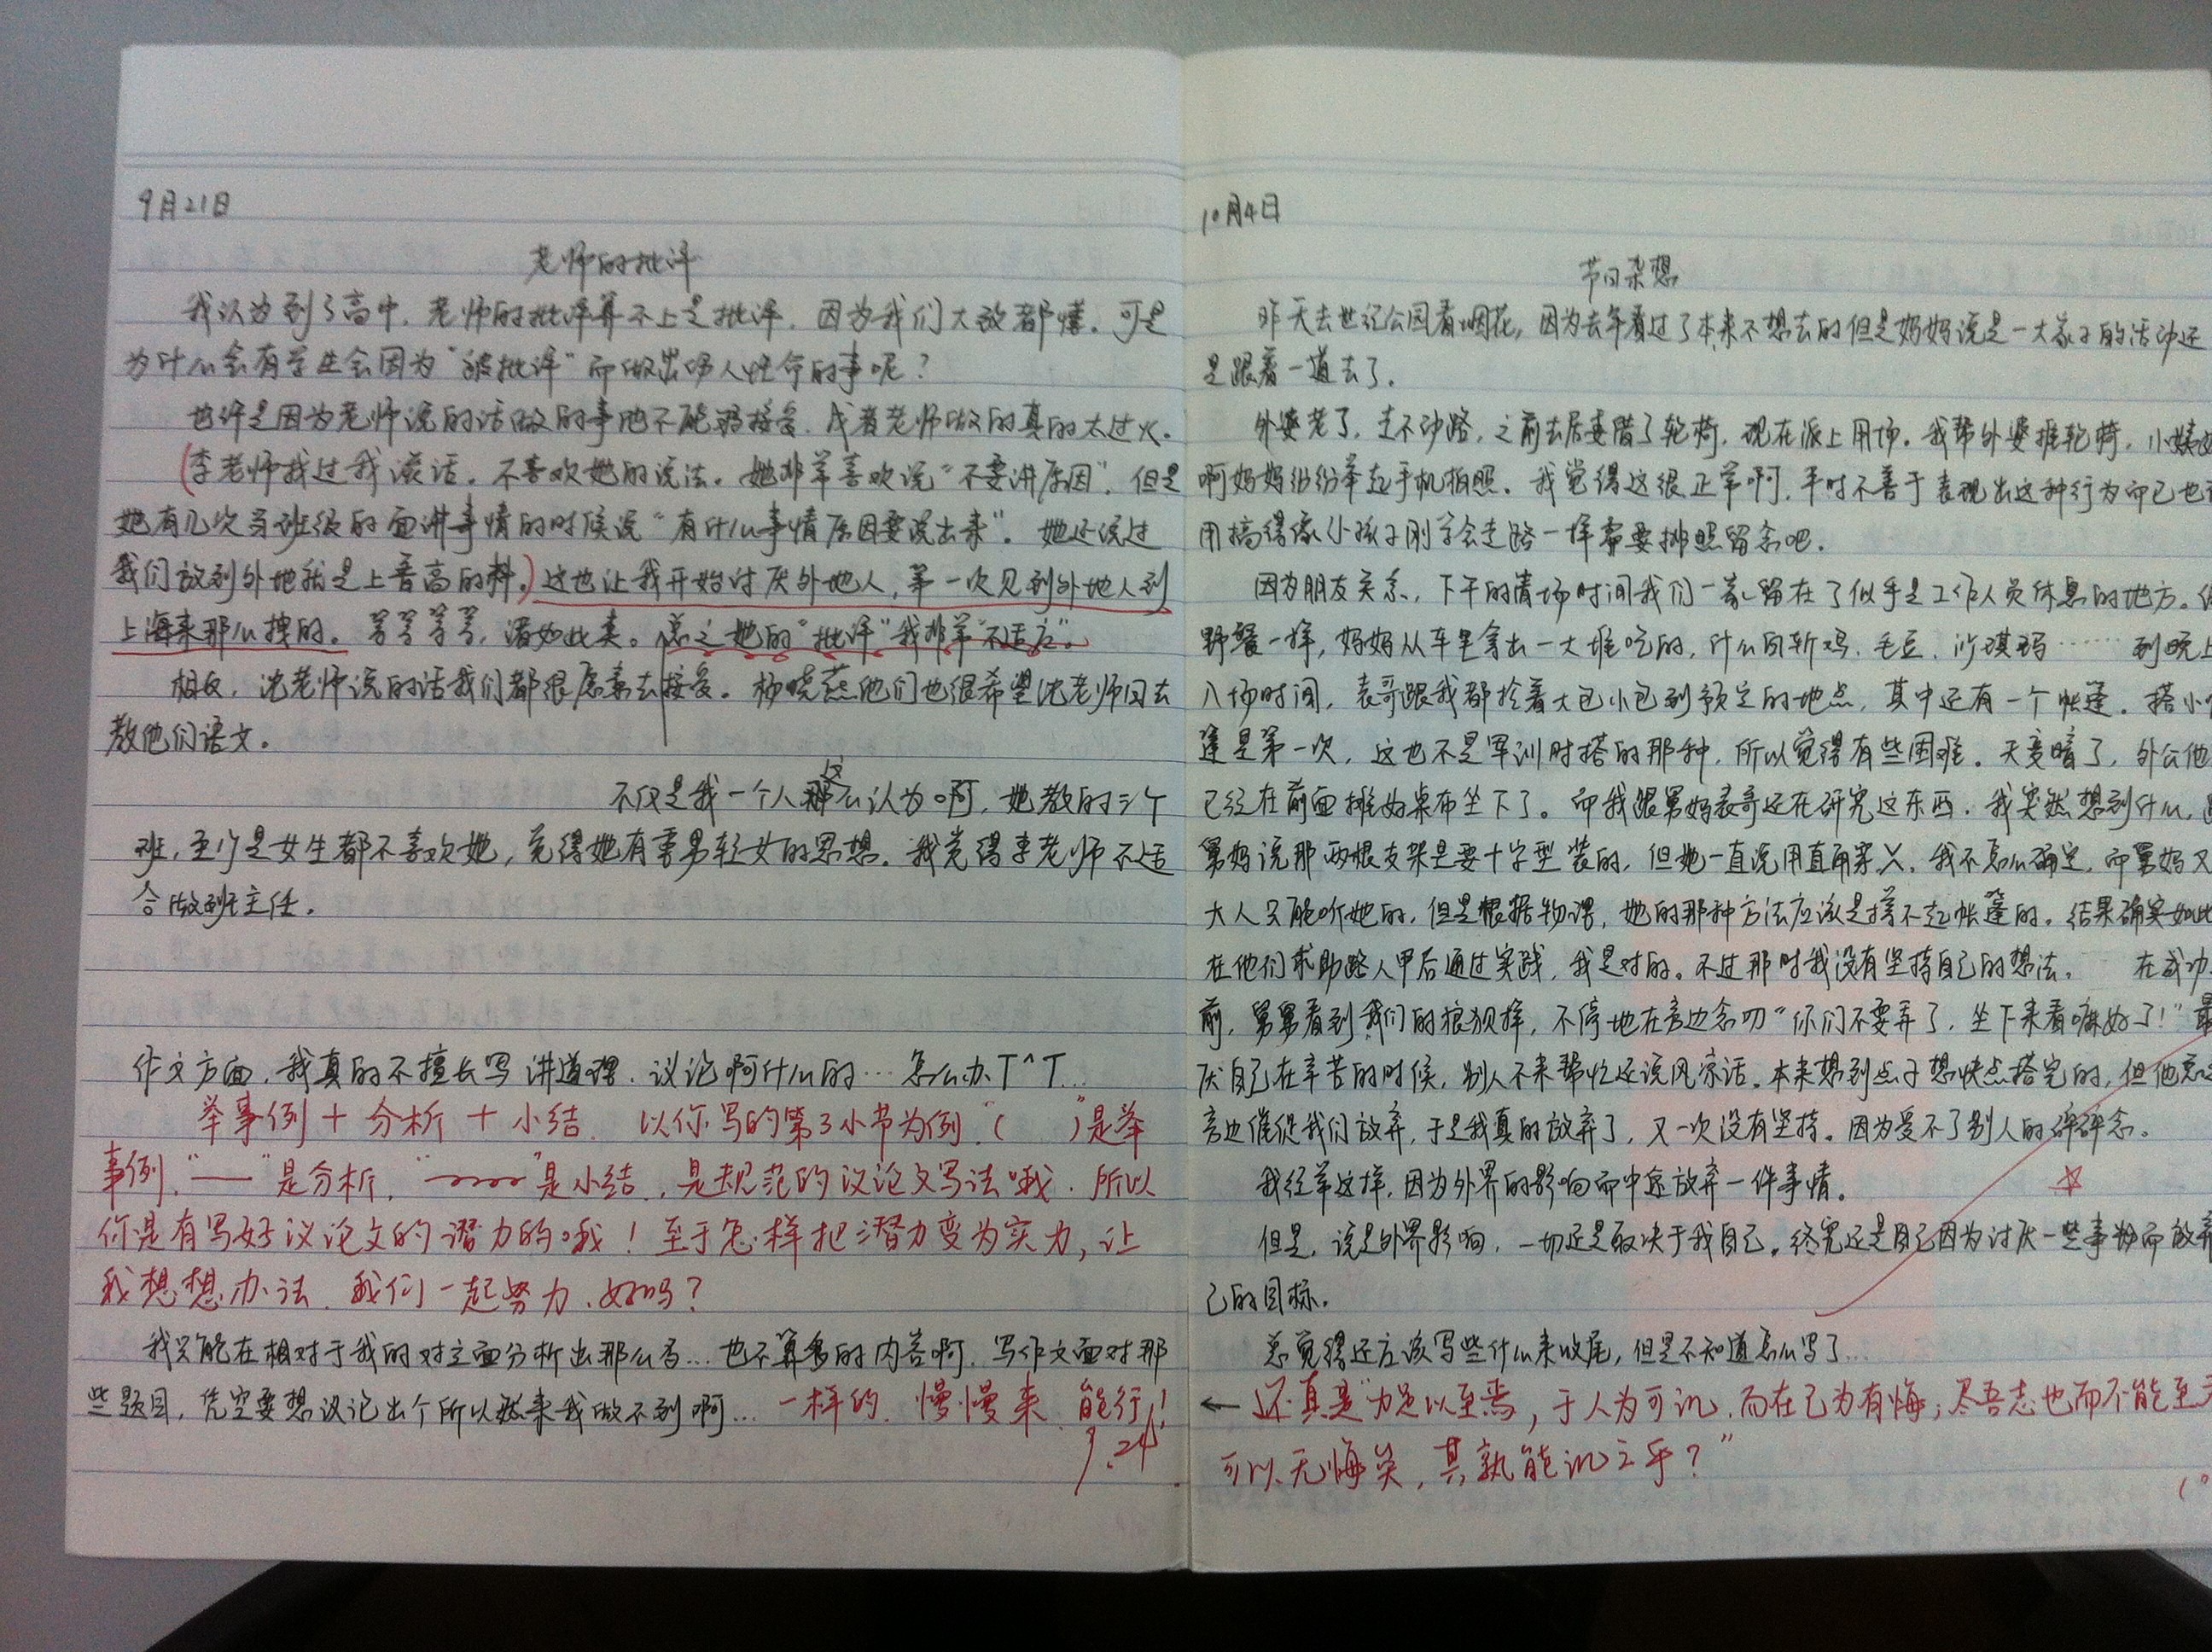 9月21日
老师的批评
我认为到了高中，老师的批评算不上是批评，因为我们大致都懂。可是
为什么会有学生会因为“被批评”而做出伤人性命的事呢？
也许是因为老师说的话做的事他不能够接受，或者老师做的真的太过火。
（李老师找过我谈话。不喜欢她的说法。她非常喜欢说“不要讲原因”，但是
她有几次当班级的面讲事情的时候说“有什么事情原因要说出来”。她还说过
我们放到外地就是上晋高的料。）这也让我开始讨厌外地人，第一次见到外地人到
上海来那么拽的。等等等等，诸如此类。总之她的“批评”我非常“不适应”。
相反，沈老师说的话我们都很愿意去接受。杨晓燕他们也很希望沈老师回去
教他们语文。
不仅是我一个人这么认为啊，她教的三个
班，至少是女生都不喜欢她，觉得她有重男轻女的思想。我觉得李老师不适
合做班主任。
作文方面，我真的不擅长写讲道理、议论啊什么的…怎么办T^T…
举事例＋分析＋小结，以你写的第3小节为例，“（ ）”是举
事例，“——”是分析，“﹏﹏”是小结，是规范的议论文写法哦，所以
你是有写好议论文的潜力的哦！至于怎样把潜力变为实力，让
我想想办法，我们一起努力，好吗？
我只能在相对于我的对立面分析出那么否…也不算多的内容啊，写作文面对那
些题目，凭空要想议论出个所以然来我做不到啊… 一样的，慢慢来，能行！
9.24
10月4日
节日杂想
昨天去世纪公园看烟花，因为去年看过了本来不想去的但是妈妈说是一大家子的活动还
是跟着一道去了。
外婆老了，走不动路，之前去居委借了轮椅，现在派上用场。我帮外婆推轮椅，小姨
啊妈妈纷纷举起手机拍照。我觉得这很正常啊，平时不善于表现出这种行为而已也
用搞得像小孩子刚学会走路一样需要拍照留念吧。
因为朋友关系，下午的清场时间我们一家留在了似乎是工作人员休息的地方。
野餐一样，妈妈从车里拿出一大堆吃的，什么白斩鸡、毛豆、沙琪玛……到晚上
入场时间，表哥跟我都拎着大包小包到预定的地点，其中还有一个帐篷。搭小
篷是第一次，这也不是军训时搭的那种，所以觉得有些困难。天变暗了，外公他
已经在前面摊好桌布坐下了。而我跟舅妈表哥还在研究这东西，我突然想到什么，
舅妈说那两根支架是要十字型装的，但她一直说用直角穿入，我不怎么确定，而舅妈又
大人只能听她的，但是根据物理，她的那种方法应该是撑不起帐篷的。结果确实如此
在他们求助路人甲后通过实践，我是对的。不过那时我没有坚持自己的想法。 在成功
前，舅舅看到我们的狼狈样，不停地在旁边念叨“你们不要弄了，坐下来看嘛好了！”最
厌自己在辛苦的时候，别人不来帮忙还说风凉话。本来想到点子想快点搭完的，但他总
旁边催促我们放弃，于是我真的放弃了，又一次没有坚持。因为受不了别人的碎碎念。
我经常这样，因为外界的影响而中途放弃一件事情。
但是，说是外界影响，一切还是取决于我自己。终究还是自己因为讨厌一些事物而放弃
己的目标。
总觉得还应该写些什么来收尾，但是不知道怎么写了…
←还真是“力足以至焉，于人为可讥，而在己为有悔；尽吾志也而不能至
可以无悔矣，其孰能讥之乎？”